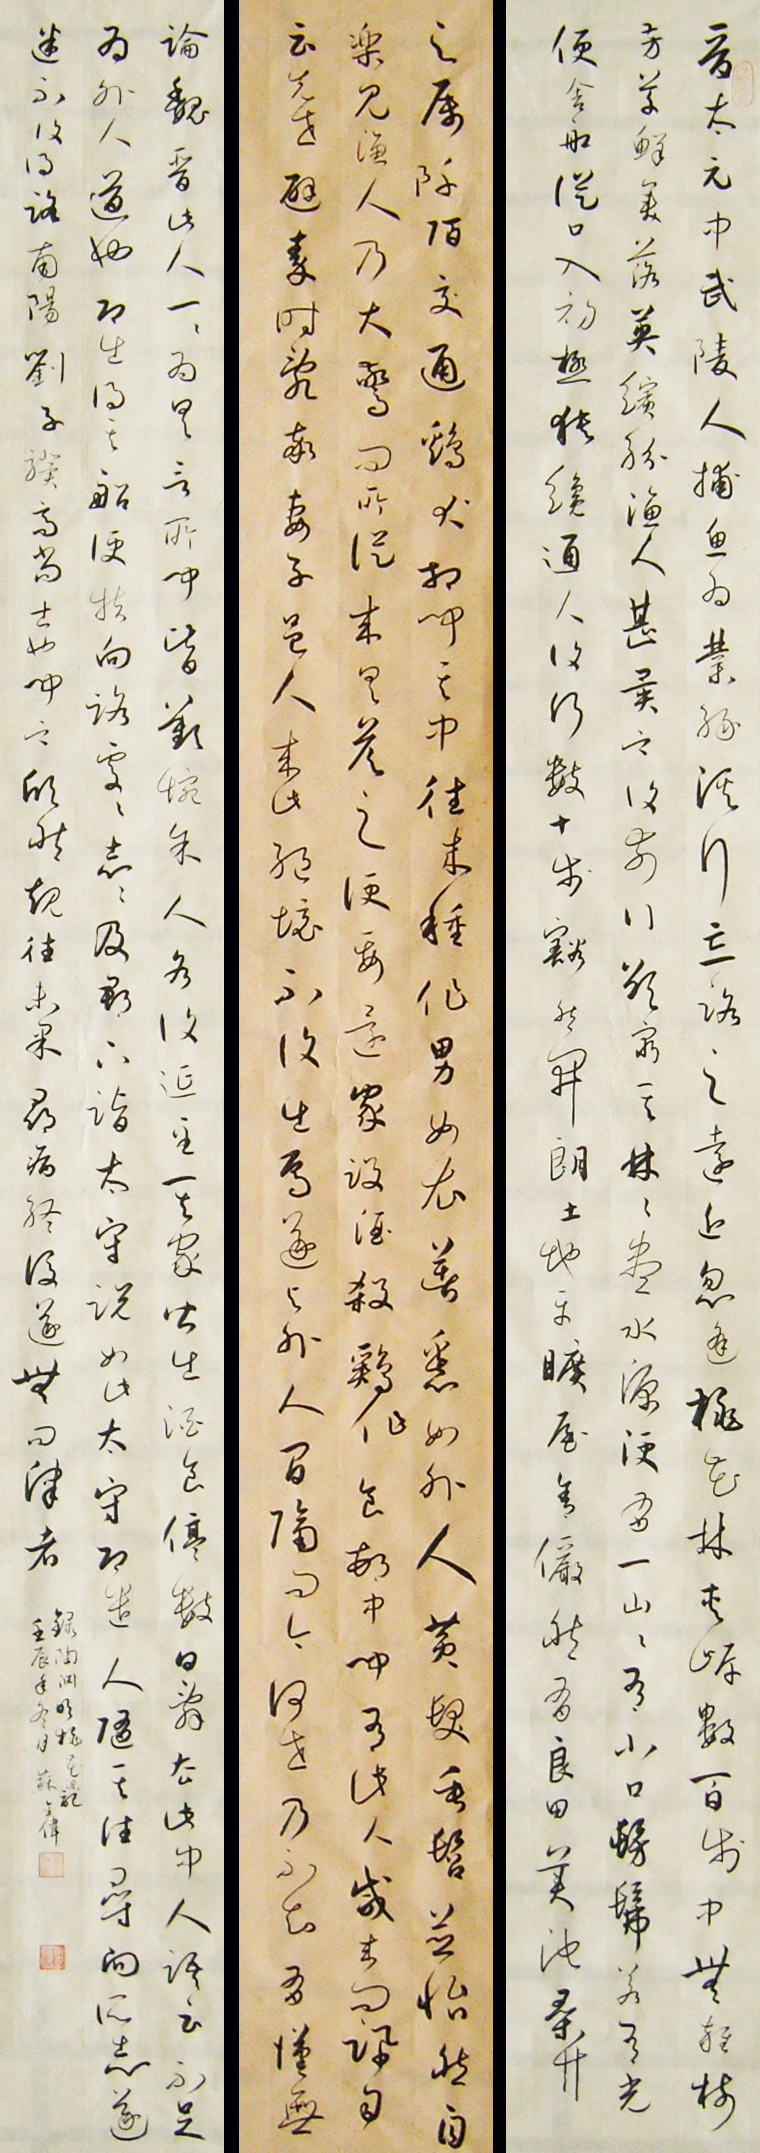 晉太元中武陵人捕魚為業緣溪行忘路之遠近忽逢桃花林夾岸數百步中無雜樹
芳草鮮美落英繽紛漁人甚異之復前行欲窮其林〻盡水源便有一山〻有小口髣髴若有光
便舍船從口入初極狹纔通人復行數十步豁然開朗土地平曠屋舍儼然有良田美池桑竹
之屬阡陌交通鷄犬相聞其中往來種作男女衣著悉如外人黃髮垂髫並怡然自
樂見漁人乃大驚問所從來具答之便要還家設酒殺鷄作食邨中聞有此人咸來問訊自
云先世避秦時亂率妻子邑人來此絕境不復出焉遂與外人間隔問今何世乃不知有漢無
論魏晉此人一〻為具言所聞皆歎惋余人各復延至其家皆出酒食停數日辭去此中人語云不足
為外人道也即出得其船便扶向路處〻志〻及郡下詣太守說如此太守即遣人隨其往尋向所志遂
迷不復得路南陽劉子驥高尚士也聞之欣然規往未果尋病終後遂無問津者
錄陶淵明桃花源記
壬辰年冬月蘇偉